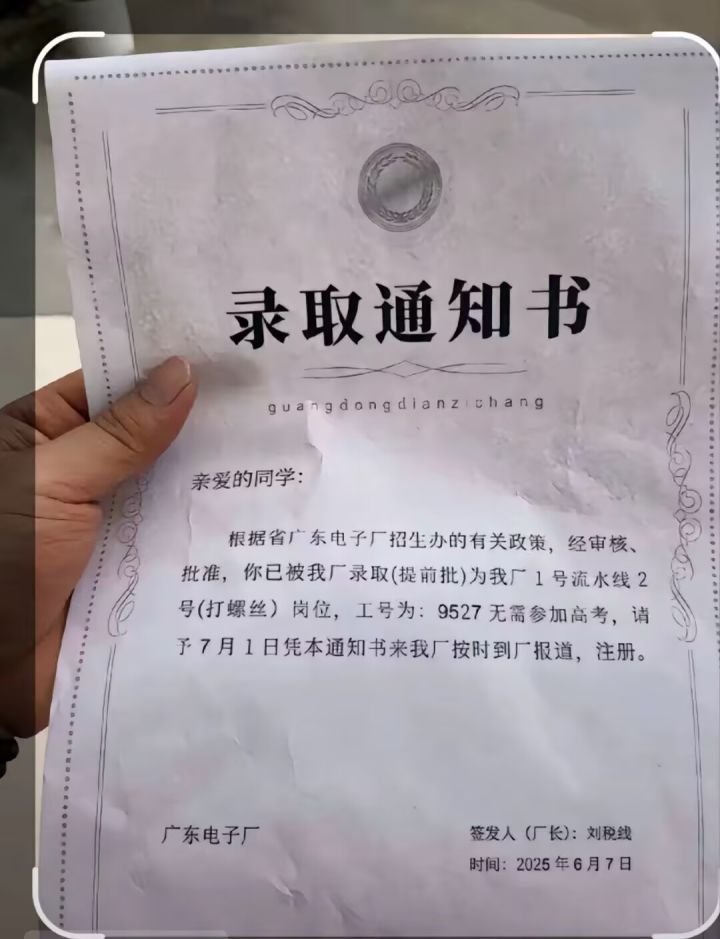 录取通知书
guangdongdianzichang
亲爱的同学：
根据省广东电子厂招生办的有关政策，经审核、
批准，你已被我厂录取(提前批)为我厂1号流水线2
号(打螺丝）岗位，工号为：9527无需参加高考，请
予7月1日凭本通知书来我厂按时到厂报道，注册。
广东电子厂
签发人（厂长）：刘税线
时间：2025年6月7日